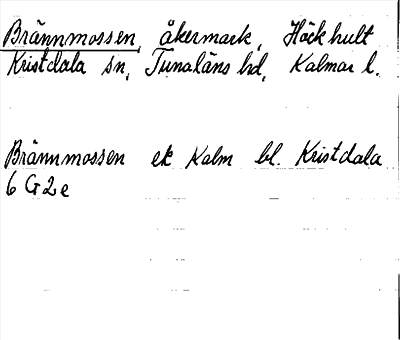 Brännmossen, åkermark, Höckhult
Kristdala sn, Tunaläns hd, Kalmar l.
Brännmossen ek Kalm bl. Kristdala
6 G 2 e